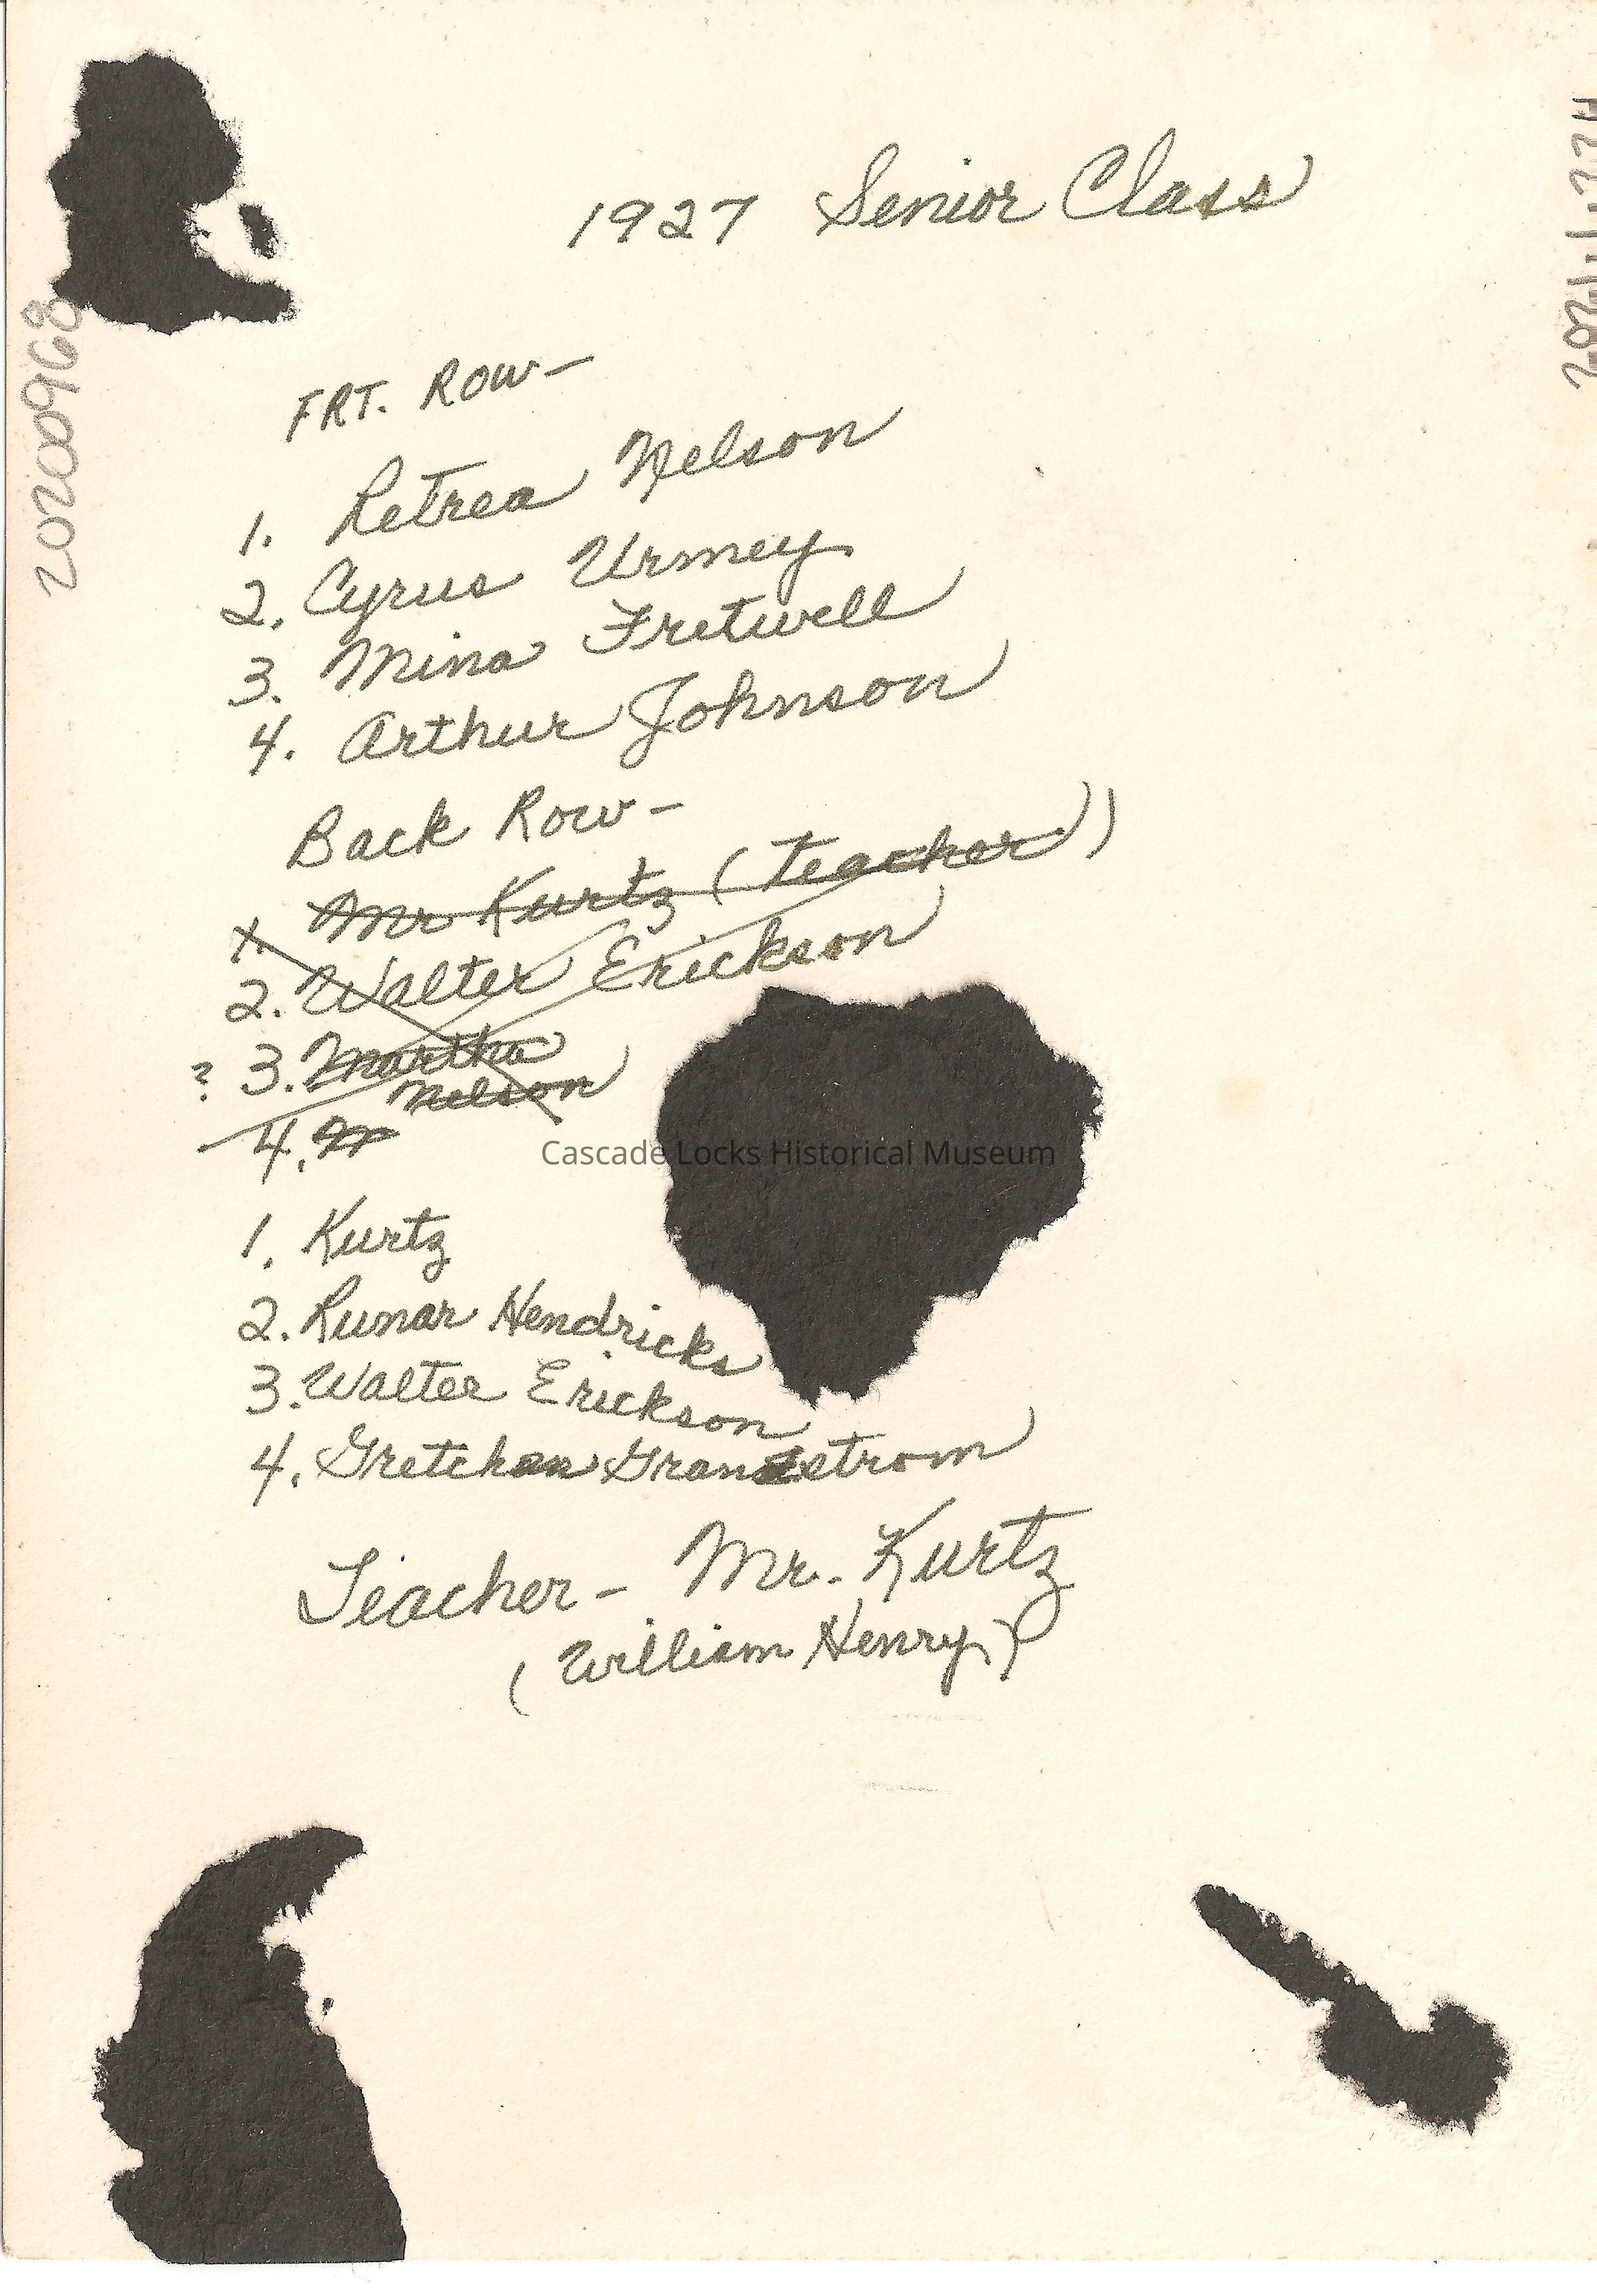 1927 Senior Class
FRT. ROW-
1. Retrea Nelson
2. Cyrus Urmey
3. Mina Fretwell
4. Arthur Johnson
Back Row-
1. Mr Kurtz (Teacher)
2. Walter Erickson
? 3. Martha
Nelson
4. Mr
Cascade Locks Historical Museum
1. Kurtz
2. Runar Hendricks
3. Walter Erickson
4. Gretchen Granstrom
Teacher- Mr. Kurtz
(William Henry)
20200968